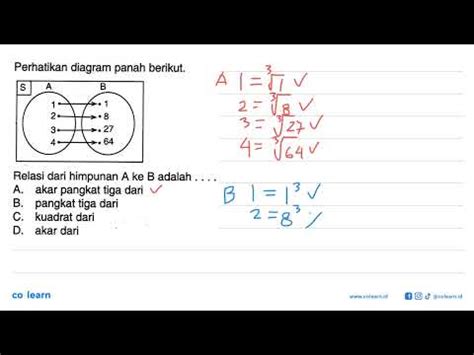 Perhatikan diagram panah berikut.
S A B
1 1
2 8
3 27
4 64
Relasi dari himpunan A ke B adalah . . . .
A. akar pangkat tiga dari ✓
B. pangkat tiga dari
C. kuadrat dari
D. akar dari
A 1 = ∛1 ✓
2 = ∛8 ✓
3 = ∛27 ✓
4 = ∛64 ✓
B 1 = 1³ ✓
2 = 8³
co learn
www.colearn.id
@colearn.id